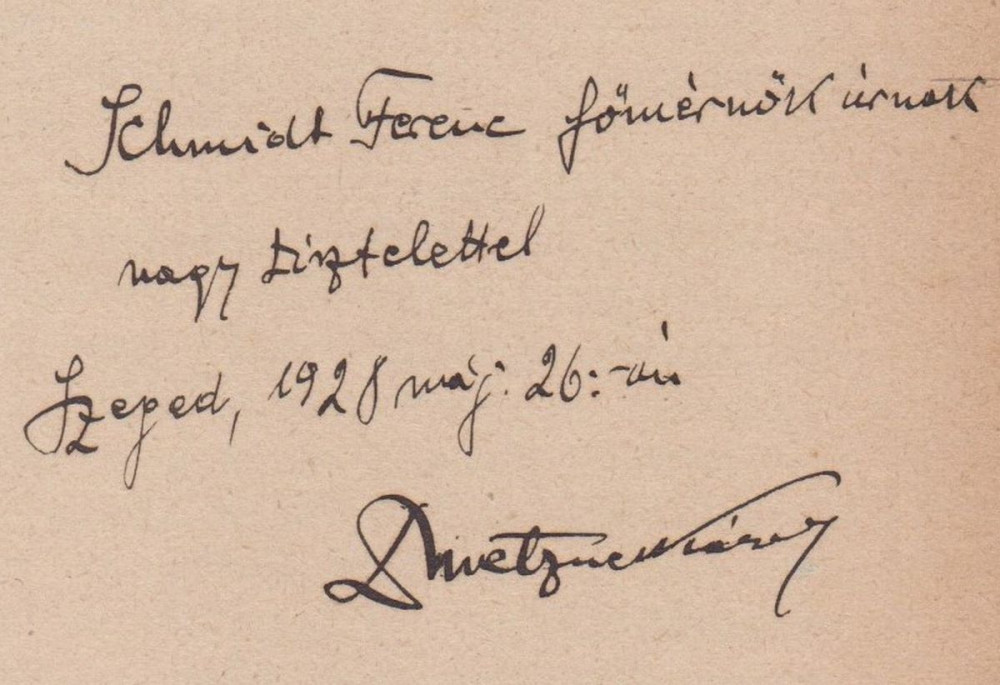 Schmidt Ferenc főmérnök úrnak
nagy tisztelettel
Szeged, 1928 máj. 26:-án